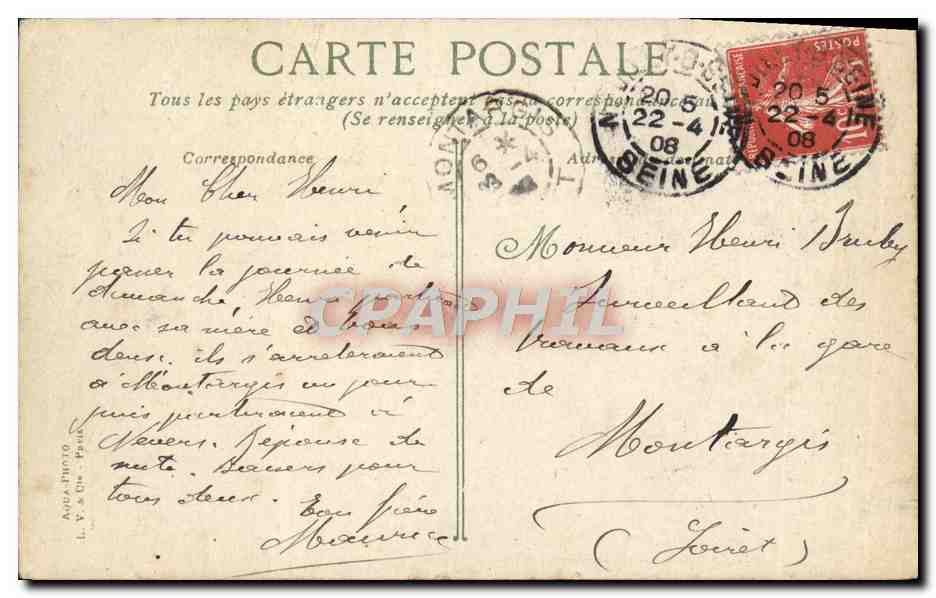 CARTE POSTALE
Tous les pays étrangers n'acceptent pas la correspondance au
(Se renseigner à la poste)
Correspondance
Mon Cher Henri
Si tu pouvais venir
passer la journée de
dimanche Henri partirait
avec sa mère et tous
deux. ils s'arreteraient
à Montargis un jour
puis partiraient à
Nevers. Réponse de
suite. Baisers pour
tous deux.
Ton frère
Maurice
Monsieur Henri
Surveillant des
travaux à la gare
de
Montargis
(Loiret)
20 5
22-4
08
SEINE
20 5
22-4
08
SEINE
POSTES
10
MONTARGIS
CPAPHIL
AQUA-PHOTO
L. V. & Cie - Paris